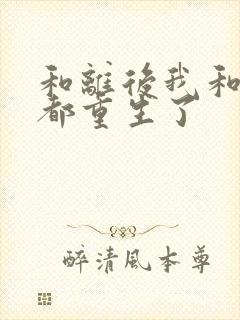 和離後我和
都重生了
醉清風本尊